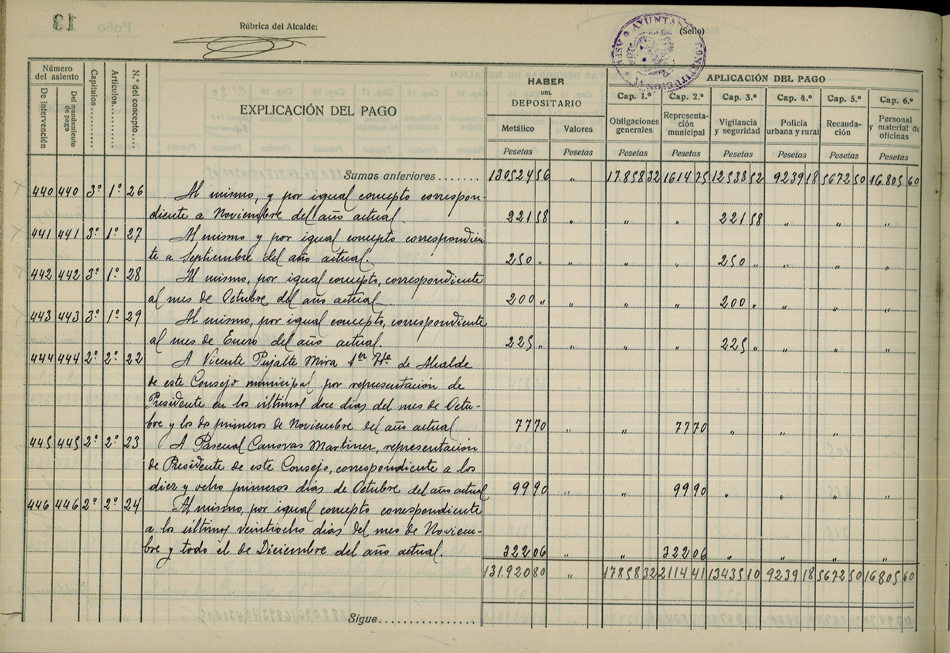 Rúbrica del Alcalde:
(Sello)
AYUNTA
CONSTITUCIONAL
Número del asiento
De intervención
Del mandamiento de pago
Capítulos
Artículos
N.º del concepto
EXPLICACIÓN DEL PAGO
HABER DEL DEPOSITARIO
Metálico Valores
APLICACIÓN DEL PAGO
Cap. 1.º Cap. 2.º Cap. 3.º Cap. 4.º Cap. 5.º Cap. 6.º
Obligaciones generales Representación municipal Vigilancia y seguridad Policía urbana y rural Recaudación Personal y material de oficinas
Pesetas Pesetas Pesetas Pesetas Pesetas Pesetas Pesetas Pesetas
Sumas anteriores 130524 56 " 17.858 32 1614 75 12538 52 9239 18 5672 50 16.805 60
440 440 3º 1º 26 Al mismo, y por igual concepto correspon-
diente a Noviembre del año actual. 221 58 " " " 221 58 " " "
441 441 3º 1º 27 Al mismo y por igual concepto correspondien
te a Septiembre del año actual. 250 " " " " 250 " " " "
442 442 3º 1º 28 Al mismo, por igual concepto, correspondiente
al mes de Octubre del año actual 200 " " " " 200 " " " "
443 443 3º 1º 29 Al mismo, por igual concepto, correspondiente
al mes de Enero del año actual. 225 " " " " 225 " " " "
444 444 2º 2º 22 A Vicente Pujalte Mira 1er Tte de Alcalde
de este Consejo municipal por representación de
Presidente en los últimos doce días del mes de Octu-
bre y los dos primeros de Noviembre del año actual 77 70 " " 77 70 " " " "
445 445 2º 2º 23 A Pascual Canovas Martinez, representación
de Presidente de este Consejo, correspondiente a los
diez y ocho primeros días de Octubre del año actual 99 90 " " 99 90 " " " "
446 446 2º 2º 24 Al mismo, por igual concepto correspondiente
a los últimos veintiocho días del mes de Noviem-
bre y todo el de Diciembre del año actual. 322 06 " " 322 06 " " " "
131.920 80 " 17858 32 2114 41 13435 10 9239 18 5672 50 16805 60
Sigue